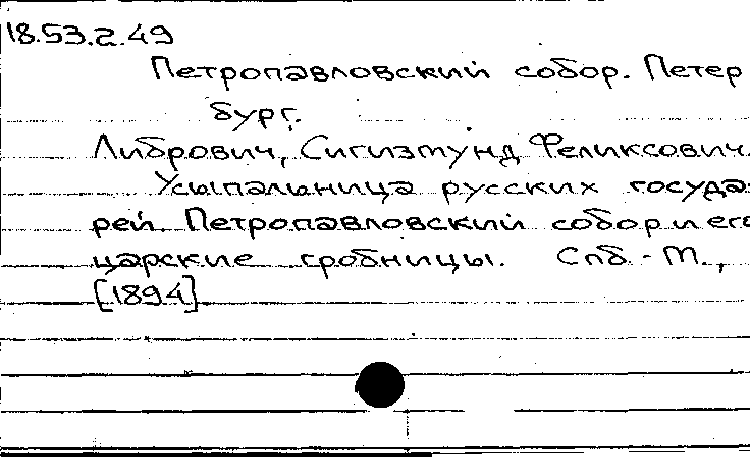 18.53.2.49
Петропавловский собор. Петер
бург.
Либрович, Сигизмунд Феликсович.
Усыпальница русских госуда
рей. Петропавловский собор и его
царские гробницы. Спб.-М.,
[1894]